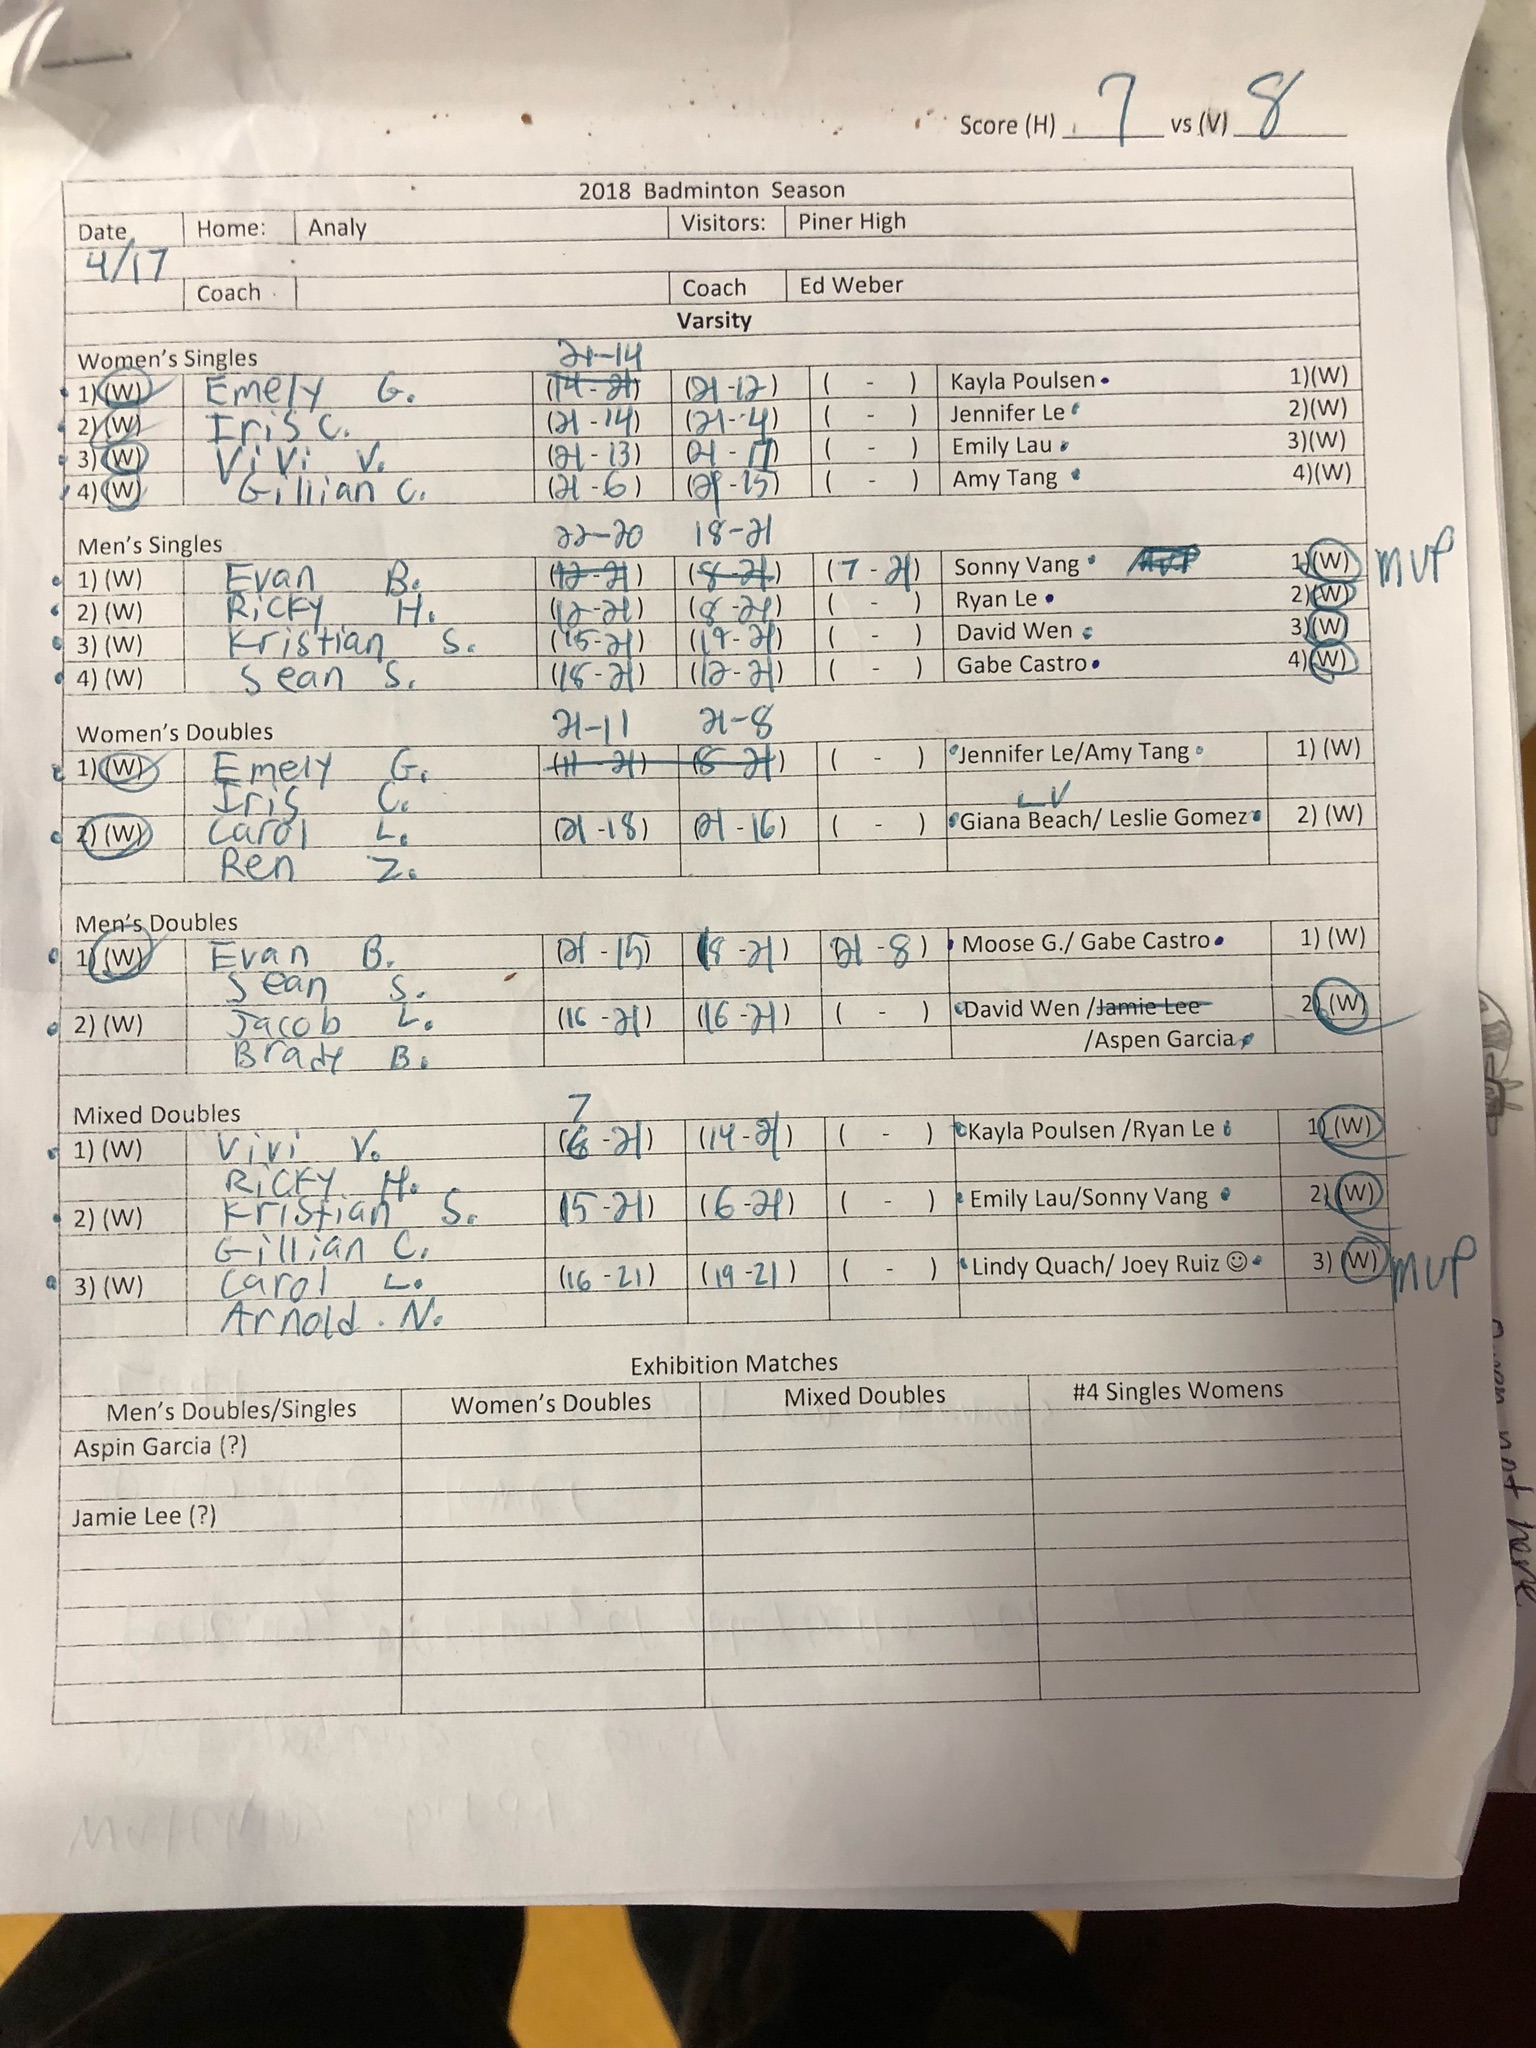 Score (H) 7 vs (V) 8
2018 Badminton Season
Date Home: Analy Visitors: Piner High
4/17
Coach Coach Ed Weber
Varsity
21-14
Women's Singles
1)(W) Emely G. (14-21) (21-12) ( - ) Kayla Poulsen 1)(W)
2)(W) Iris C. (21-14) (21-4) ( - ) Jennifer Le 2)(W)
3)(W) Vivi V. (21-13) (21-11) ( - ) Emily Lau 3)(W)
4)(W) Gillian C. (21-6) (21-15) ( - ) Amy Tang 4)(W)
22-20 18-21
Men's Singles
1) (W) Evan B. (12-21) (8-21) (7-21) Sonny Vang MVP 1)(W) MVP
2) (W) Ricky H. (12-21) (8-21) ( - ) Ryan Le 2)(W)
3) (W) Kristian S. (15-21) (19-21) ( - ) David Wen 3)(W)
4) (W) Sean S. (18-21) (12-21) ( - ) Gabe Castro 4)(W)
21-11 21-8
Women's Doubles
1)(W) Emely G. (11-21) (8-21) ( - ) Jennifer Le/Amy Tang 1) (W)
Iris C.
2)(W) Carol L. (21-18) (21-16) ( - ) Giana Beach/ Leslie Gomez 2) (W)
Ren Z.
Men's Doubles
1)(W) Evan B. (21-15) (18-21) (21-8) Moose G./ Gabe Castro 1) (W)
Sean S.
2) (W) Jacob L. (16-21) (16-21) ( - ) David Wen /Jamie Lee 2) (W)
Brady B. /Aspen Garcia
7
Mixed Doubles
1) (W) Vivi V. (6-21) (14-21) ( - ) Kayla Poulsen /Ryan Le 1) (W)
Ricky H.
2) (W) Kristian S. (15-21) (6-21) ( - ) Emily Lau/Sonny Vang 2) (W)
Gillian C.
3) (W) Carol L. (16-21) (19-21) ( - ) Lindy Quach/ Joey Ruiz ☺ 3) (W) MVP
Arnold. N.
Exhibition Matches
Men's Doubles/Singles Women's Doubles Mixed Doubles #4 Singles Womens
Aspin Garcia (?)
Jamie Lee (?)
not have